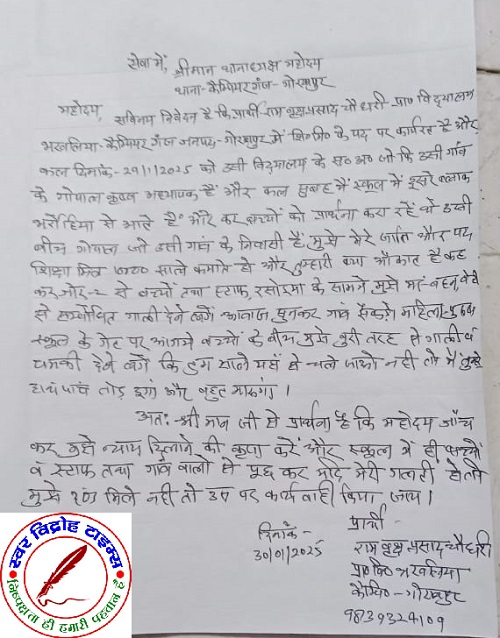 सेवा में, श्रीमान थानाध्यक्ष महोदय
थाना-कैम्पियरगंज-गोरखपुर
महोदय,
सविनय निवेदन है कि, प्रार्थी-राम बृक्ष प्रसाद चौधरी-प्रा० विद्यालय
भरवलिया-कैम्पियरगंज जनपद-गोरखपुर में शि०मि० के पद पर कार्यरत है और
कल दिनांक-29/1/2025 को उसी विद्यालय के स० अ० जो कि उसी गाँव
के गोपाल कृष्ण अध्यापक हैं और कल सुबह मैं स्कूल में दूसरे ब्लाक
भरोहिया से आते हैं और कर बच्चों को प्रार्थना करा रहे थे उसी
बीच गोपाल जो उसी गाँव के निवासी हैं, मुझे मेरे जाति और पद
शिक्षा मित्र साले कमाते हो और तुम्हारी क्या औकात है कह
कर जोर-2 से बच्चों तथा स्टाफ, रसोइया के सामने मुझे माँ बहन, बेटी
से सम्बोधित गाली देने लगे आवाज सुनकर गाँव सैकड़ो महिला-पुरुष
स्कूल के गेट पर आ गये बच्चों के बीच मुझे बुरी तरह से गाली व
धमकी देने लगे कि तुम साले यहाँ से चले जाओ नही तो मैं तुम्हे
हाथ पाँव तोड़ दूगां और बहुत मारुगां ।
अतः-श्री मान जी से प्रार्थना है कि महोदय जाँच
कर मुझे न्याय दिलाने की कृपा करें और स्कूल में ही बच्चों
व स्टाफ तथा गाँव वालो से पूछ कर यदि मेरी गलती हो तो
मुझे दण्ड मिले नही तो उन पर कार्यवाही किया जाय ।
दिनांक-
30/01/2025
प्रार्थी-
राम बृक्ष प्रसाद चौधरी
प्रा० वि० भरवलिया
कैम्पि०-गोरखपुर
9839324109
स्वर विद्रोह टाइम्स
निष्पक्षता ही हमारी पहचान है